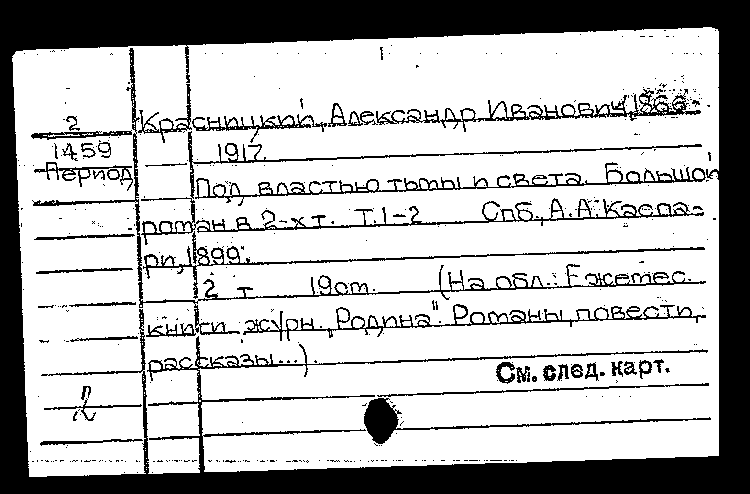 2
Красницкий, Александр Иванович, 1866-
1459
1917.
Период
Под властью тьмы и света. Большой
роман в 2-х т. Т.1-2 Спб., А.А. Каспа-
ри, 1899.
2 т 19см. (На обл.: Ежемес.
книги журн. „Родина". Романы, повести,
рассказы...).
См. след. карт.
2